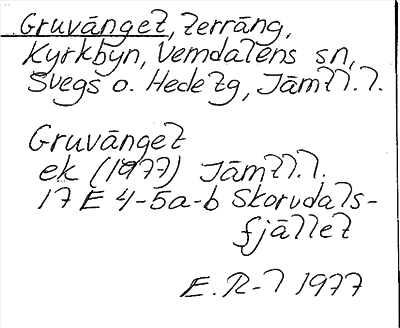 Gruvänget, Terräng,
Kyrkbyn, Vemdalens sn,
Svegs o. Hede tg, Jämtl.l.
Gruvänget
ek (1977) Jämtl.l.
17 E 4-5a-b Skorvdals-
fjället
E. R-l 1977